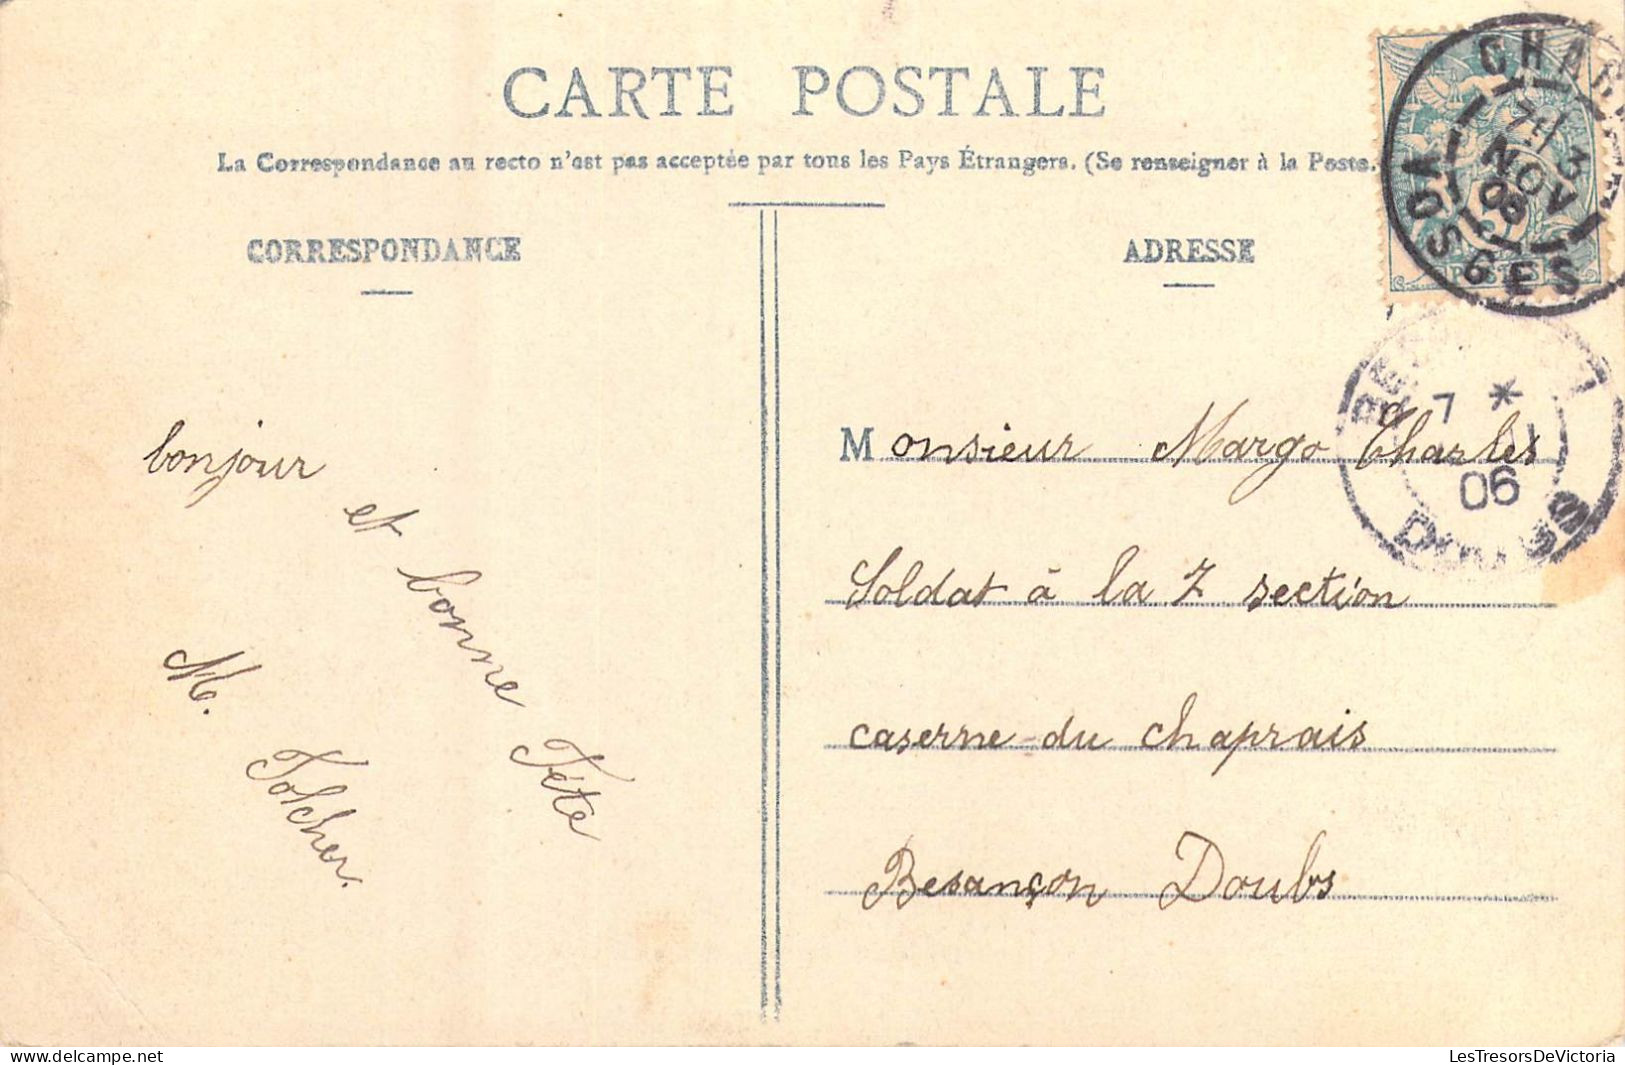 CARTE POSTALE
La Correspondance au recto n'est pas acceptée par tous les Pays Étrangers. (Se renseigner à la Poste.
CORRESPONDANCE
ADRESSE
VOSGES
NOV
POSTES
7 *
06
bonjour et bonne Fête
M. Tolcher.
Monsieur Margo Charles
Soldat à la 7 section
caserne du chaprais
Besançon Doubs
LesTresorsDeVictoria
LesTresorsDeVictoria.com